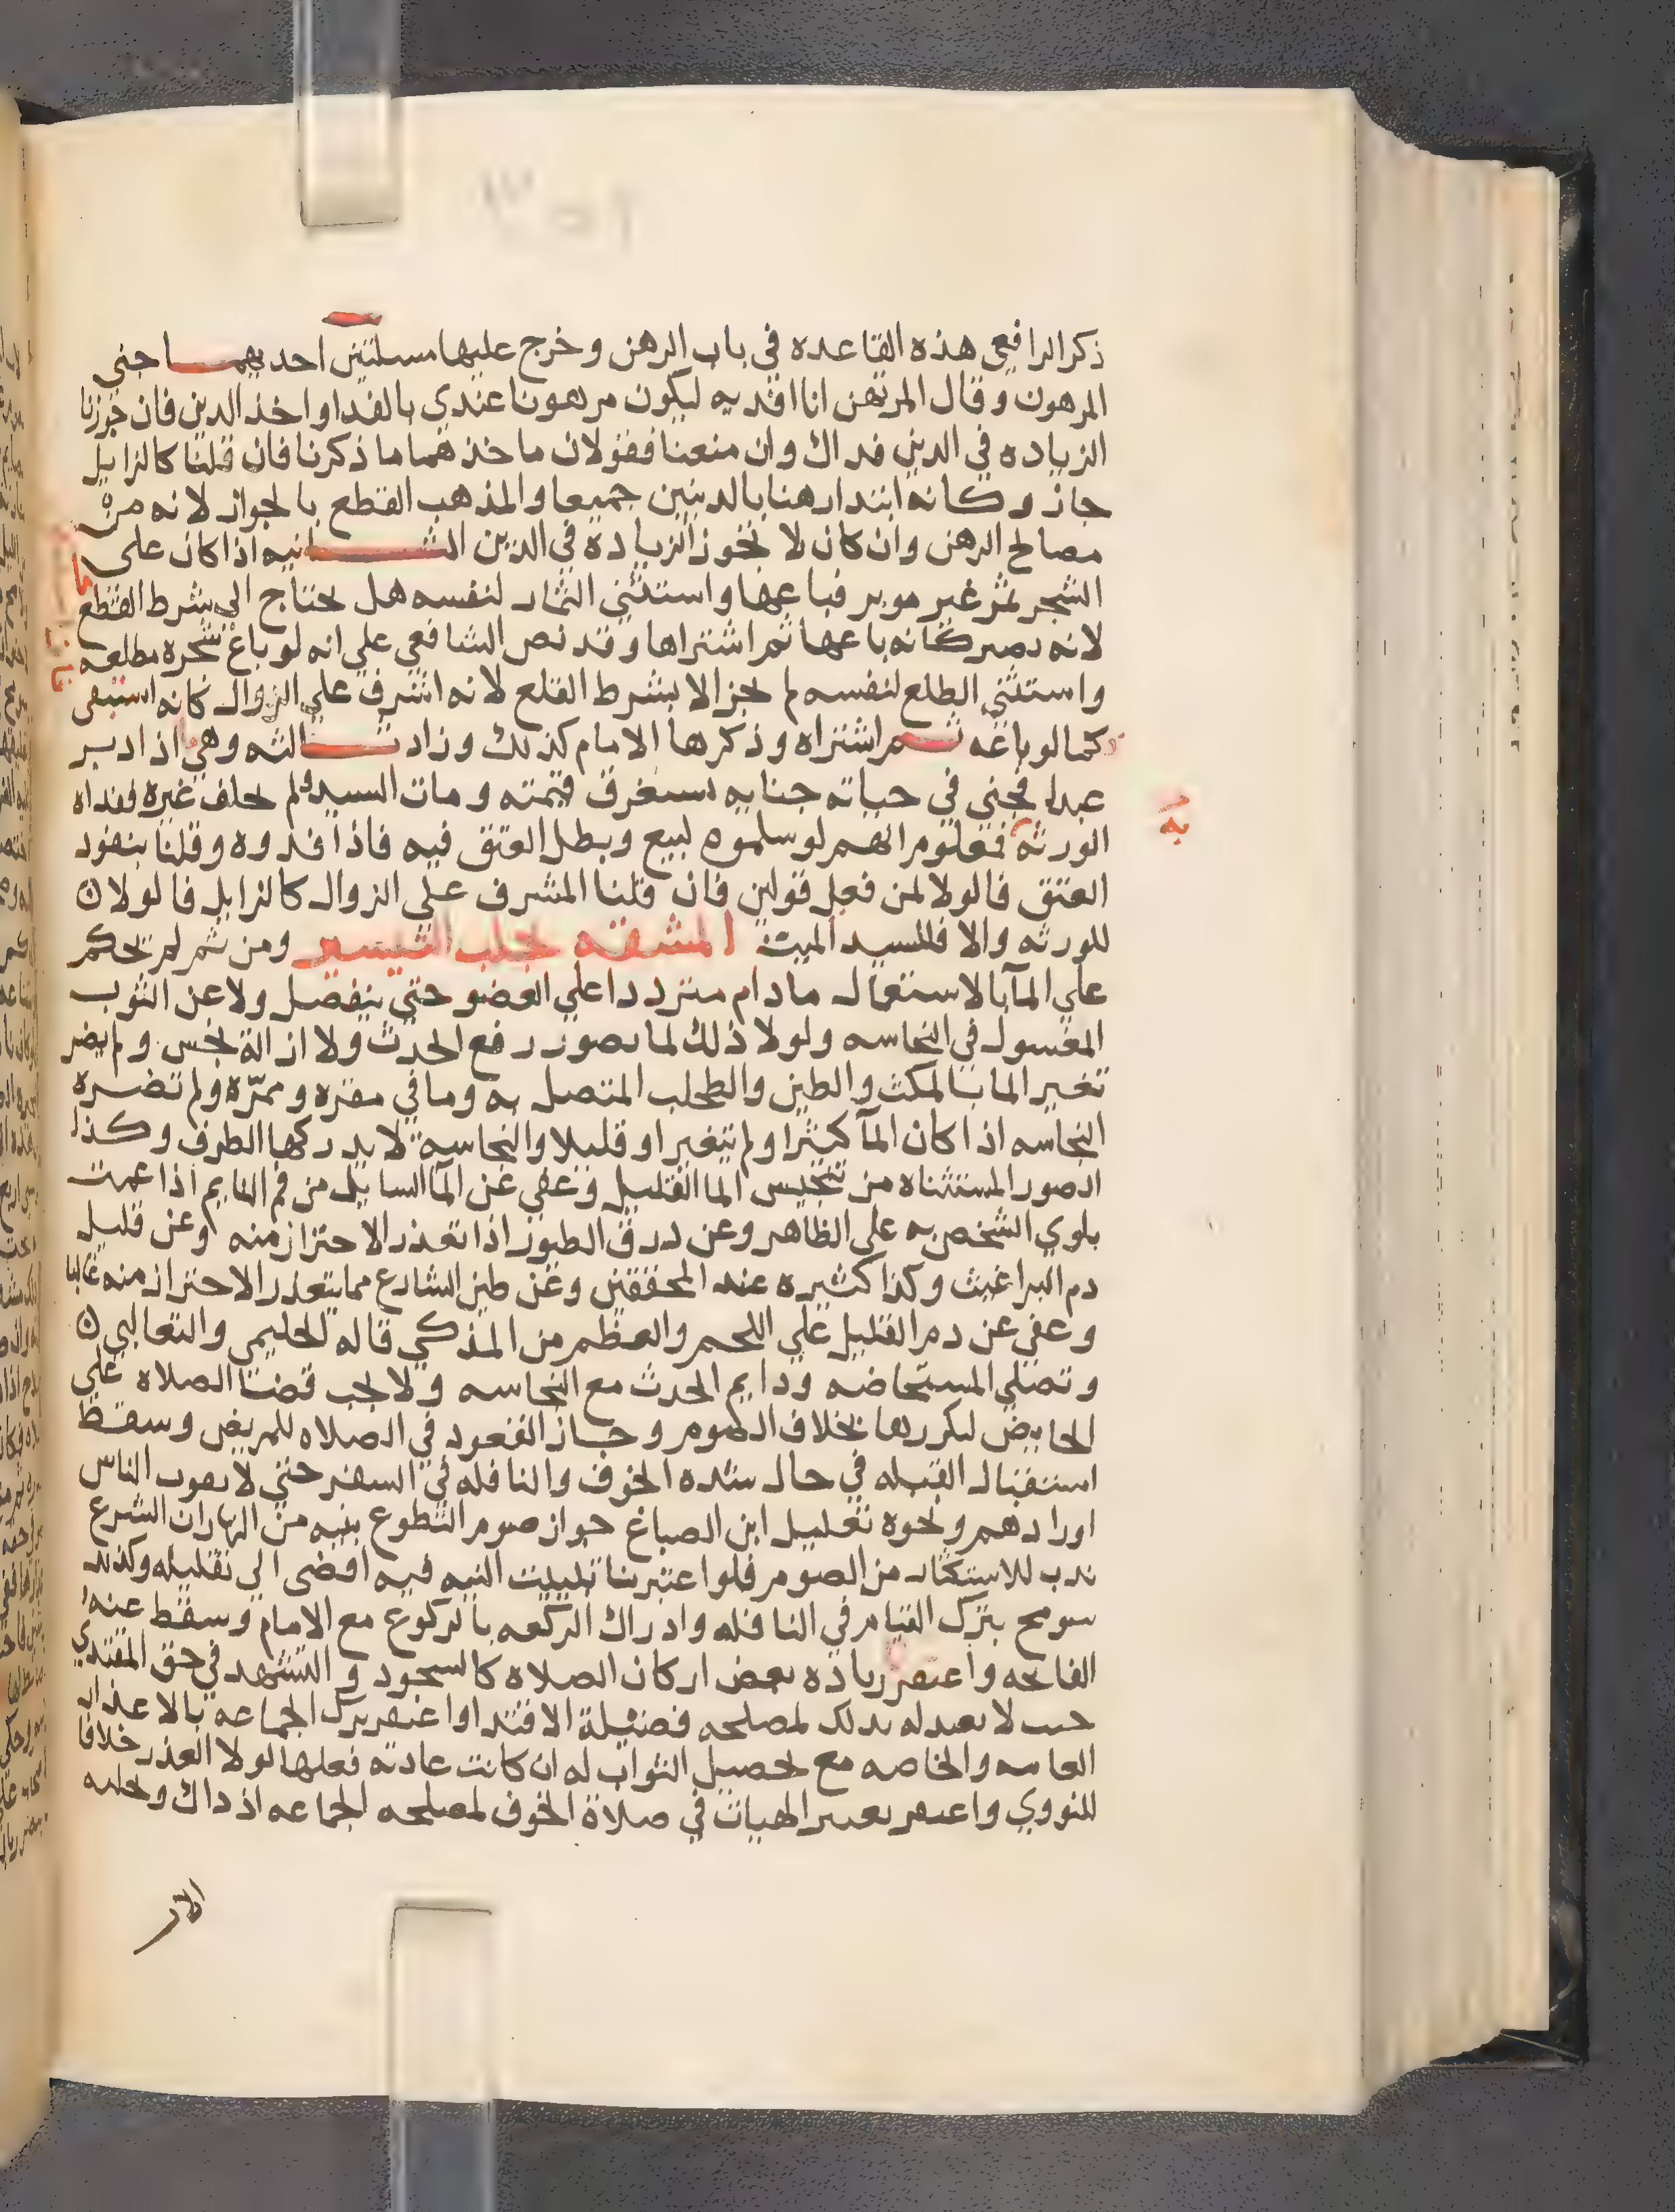 ذكر الرافعي هذه القاعده في باب الرهن وخرج عليها مسلتين احديهما جني
المرهون وقال المرتهن انا افديه ليكون مرهونا عندي بالفدا واخذ الدين فان جوزنا
الزياده في الدين فداك وان منعنا فقولان ماخذهما ما ذكرنا فان قلنا كالزايل
جاز وكانه ابتدا رهنا بالدينين جميعا والمذهب القطع بالجواز لانه من
مصالح الرهن وان كان لا تجوز الزيادة في الدين الثانيه اذا كان على
الشجر ثمر غير موبر فباعها واستثني الثمار لنفسه هل يحتاج الى شرط القطع
لانه يصير كانه باعها ثم اشتراها وقد نص الشافعي علي انه لو باع شجره مطلعه
واستثني الطلع لنفسه لم يجز الا بشرط القلع لانه اشرف علي الزوال كانه استبقي
كما لو باعه ثم اشتراه وذكرها الامام كذلك وزاد ثالثه وهي اذا دبر
عبدا فجني في حياته جنايه تستغرق قيمته ومات السيد ولم يخلف غيره ففداه
به
الورثه فمعلوم انهم لو سلموه لبيع وبطل العتق فيه فاذا فدوه وقلنا بنفود
العتق فالولا لمن فعل قولين فان قلنا المشرف علي الزوال كالزايل فالولا ن
للورثه والا فللسيد الميت المشقه تجلب التيسير ومن ثم لم يحكم
علي المآ بالاستعمال ما دام مترددا علي العضو حتي ينفصل ولا عن الثوب
المغسول في النجاسه ولولا ذلك لما تصور رفع الحدث ولا ازالة نجس ولم يضر
تغير الما بالمكث والطين والطحلب المتصل به وما في مقره وممرّه ولم تضره
النجاسه اذا كان المآ كثيرا ولم يتغير او قليلا والنجاسة لا يدركها الطرف وكذا
الصور المستثناه من تنجيس الما القليل وعفي عن المآ السايل من فم النايم اذا عمت
بلوي الشخص به علي الظاهر وعن درق الطيور اذا تعذر الاحتراز منه وعن قليل
دم البراغيث وكذا كثيره عند المحققين وعن طين الشارع مما يتعذر الاحتراز منه غالبا
وعفي عن دم القليل علي اللحم والعظم من المذكي قاله الحليمي والثعالبي ن
وتصلي المستحاضه ودايم الحدث مع النجاسه ولا يجب قضا الصلاه علي
الحايض لتكررها بخلاف الصوم وجاز القعود في الصلاه للمريض وسقط
استقبال القبله في حال شده الخوف والنافله في السفر حتي لا يفوت الناس
اورادهم ونحوه تعليل ابن الصباغ جواز صوم التطوع بنيه من النهار ان الشرع
ندب للاستكثار من الصوم فلو اعتبرنا تبييت النيه فيه افضي الي تقليله وكذلك
سومح بترك القيام في النافله وادراك الركعه بالركوع مع الامام وسقط عنه
الفاتحه واغتفر زياده بعض اركان الصلاه كالسجود والتشهد في حق المقتدي
حيث لا يعيد له بذلك لمصلحه فضيلة الاقتدا واغتفر ترك الجماعه بالاعذار
العامه والخاصه مع تحصيل الثواب له ان كانت عادته فعلها لولا العذر خلافا
للنووي واغتفر تغيير الهيات في صلاة الخوف لمصلحه الجماعه اذ ذاك